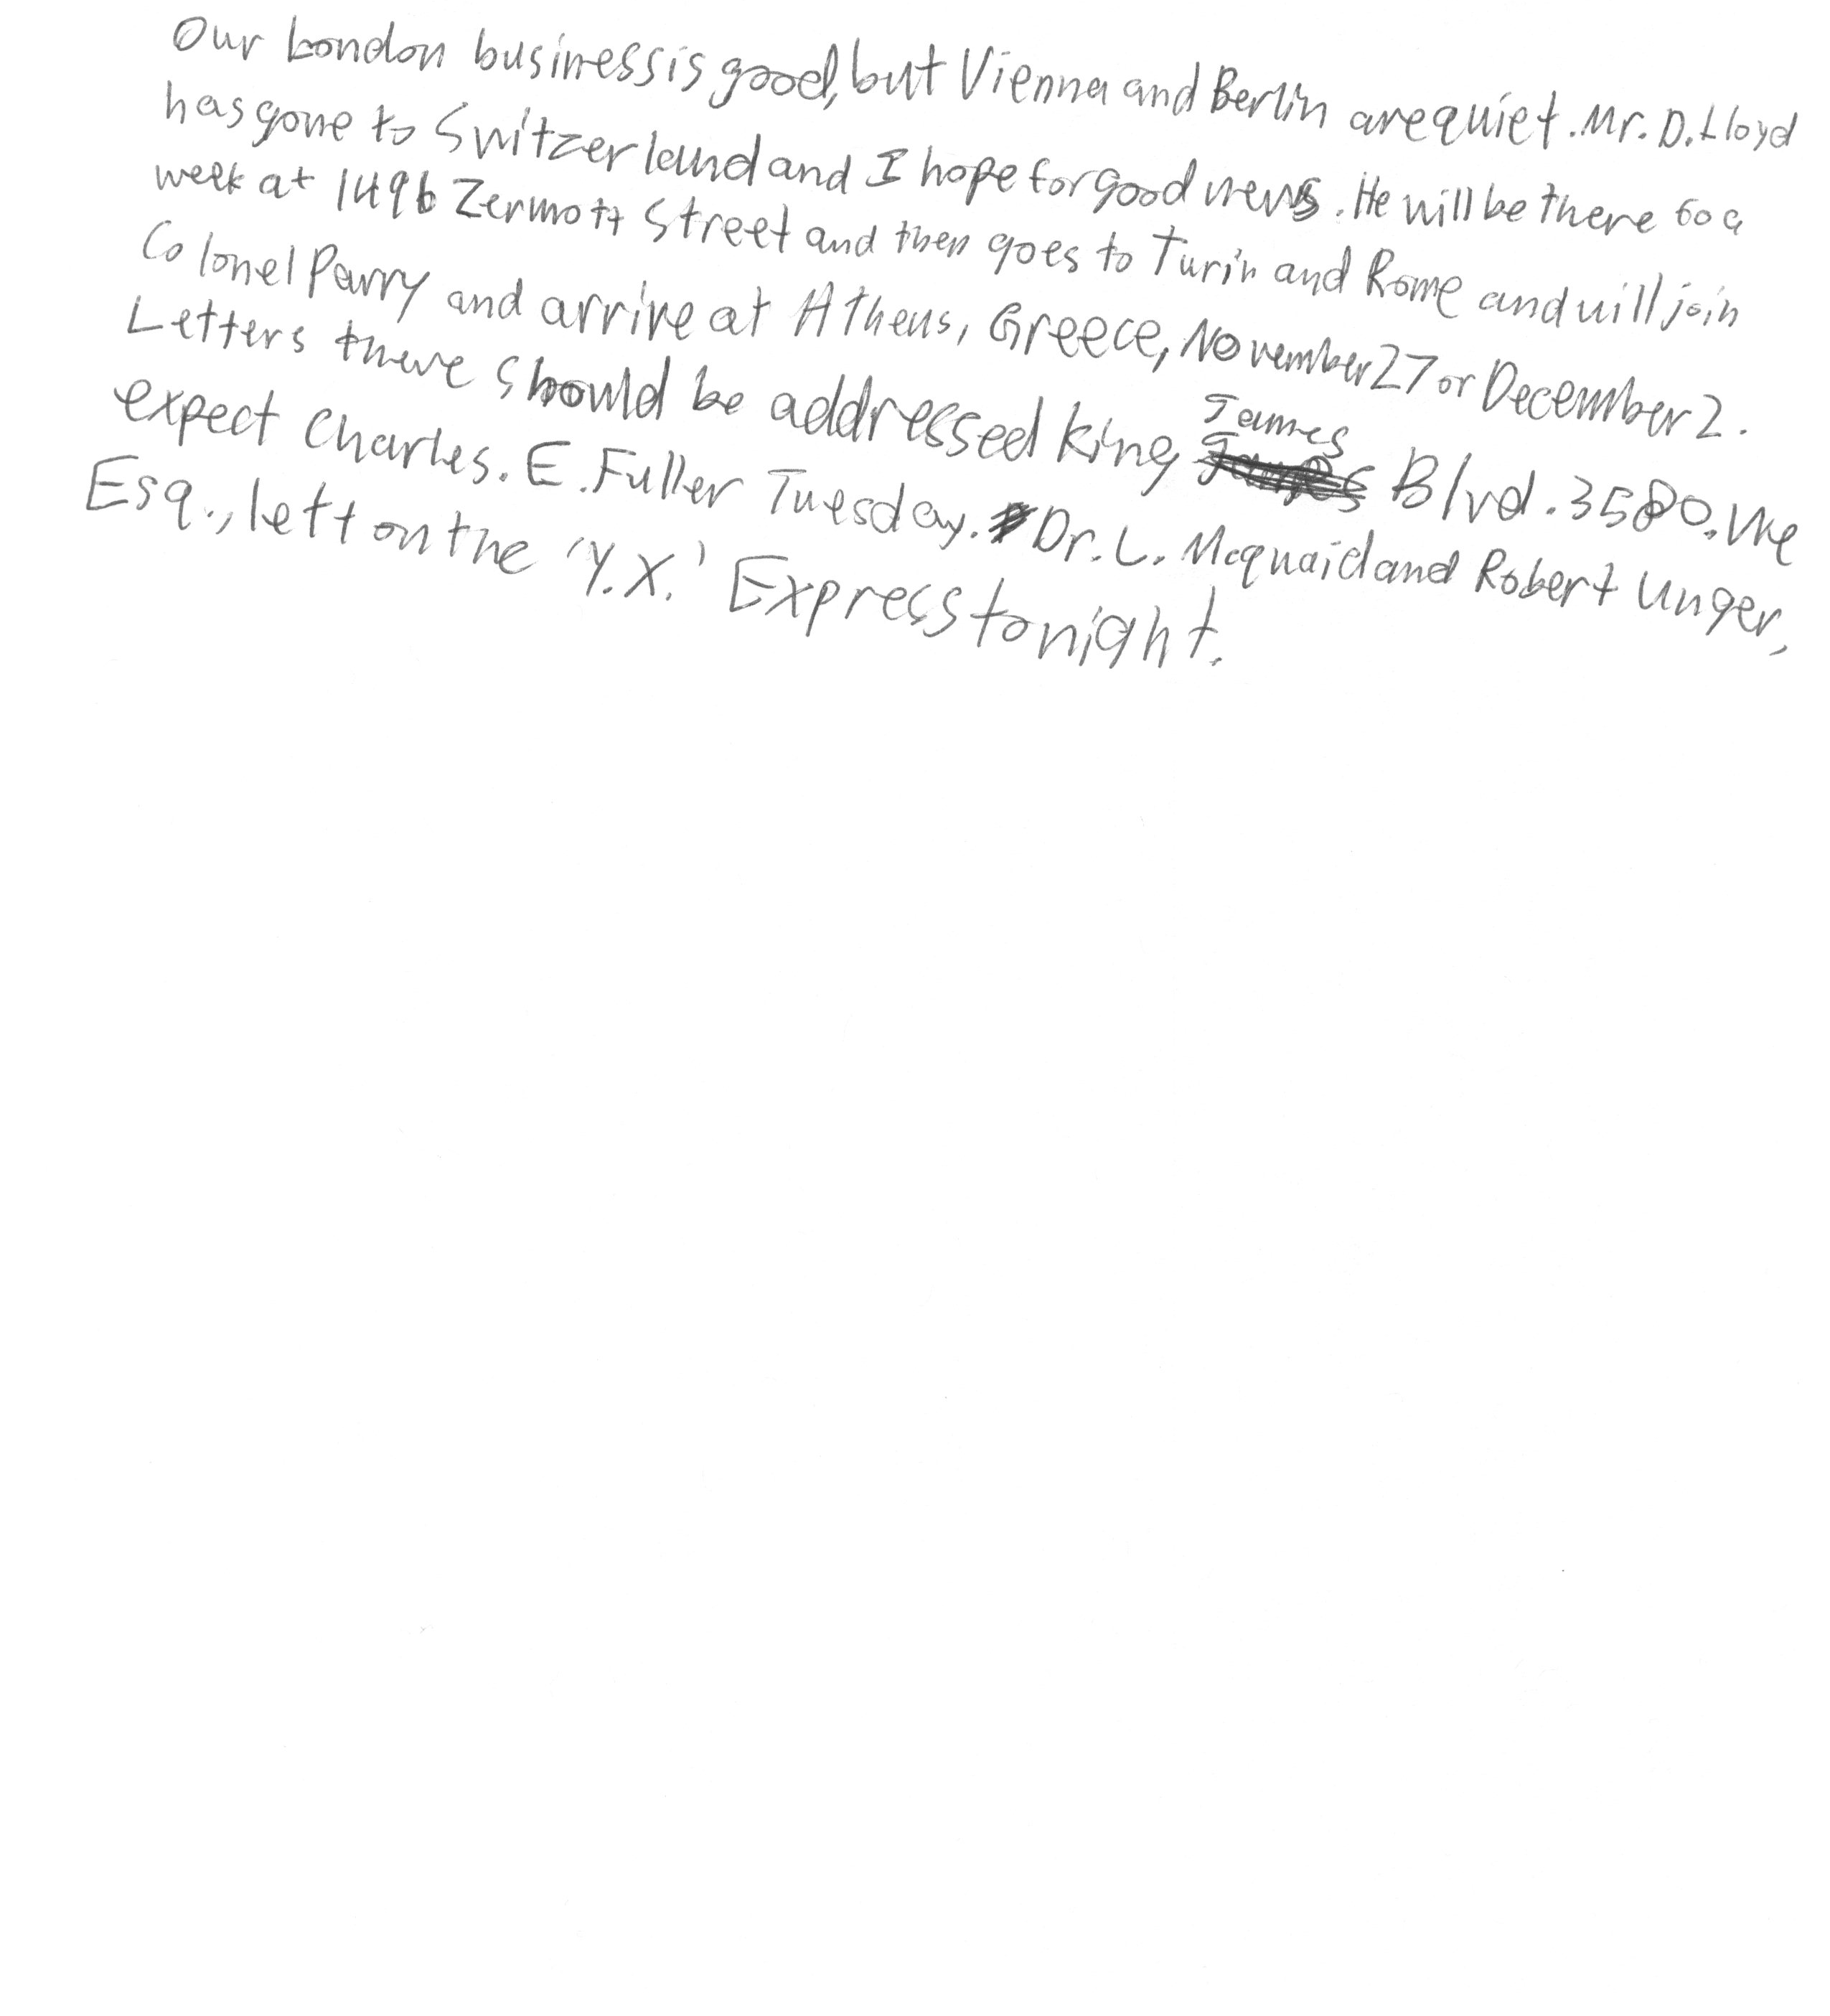 Our London business is good, but Vienna and Berlin are quiet. Mr. D. Lloyd
has gone to Switzerland and I hope for good news. He will be there fo a
week at 1496 Zermott Street and then goes to Turin and Rome and will join
Colonel Parry and arrive at Athens, Greece, November 27 or December 2.
Letters there should be addressed King James Blvd. 3580. We
expect Charles. E. Fuller Tuesday. Dr. L. Mcquaid and Robert Unger,
Esq., left on the 'Y.X.' Express tonight.